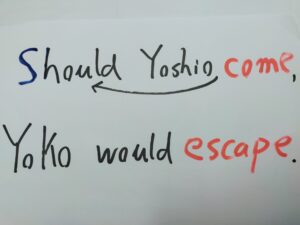 Should Yoshio come,
Yoko would escape.